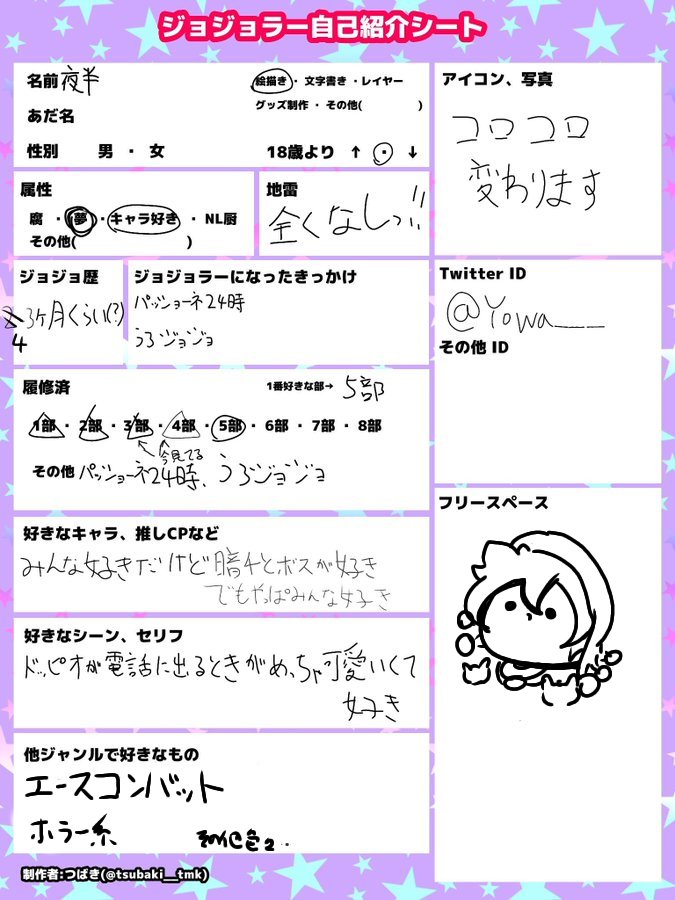 ジョジョラー自己紹介シート
名前 夜半
絵描き・文字書き・レイヤー
グッズ制作・その他( )
あだ名
性別 男 ・ 女
18歳より ↑ ・ ↓
属性
腐 ・ 夢 ・ キャラ好き ・ NL厨
その他( )
地雷
全くなしっ!!
ジョジョ歴
3ヶ月くらい(?)
4
ジョジョラーになったきっかけ
パッショーネ24時
うろジョジョ
履修済
1番好きな部→ 5部
1部・2部・3部・4部・5部・6部・7部・8部
今見てる
その他 パッショーネ24時、うろジョジョ
好きなキャラ、推しCPなど
みんな好きだけど暗チとボスが好き
でもやっぱみんな好き
好きなシーン、セリフ
ドッピオが電話に出るときがめっちゃ可愛いくて
好き
他ジャンルで好きなもの
エースコンバット
ホラー系
その他色々..
制作者:つばき(@tsubaki__tmk)
アイコン、写真
コロコロ
変わります
Twitter ID
@Yowa___
その他 ID
フリースペース